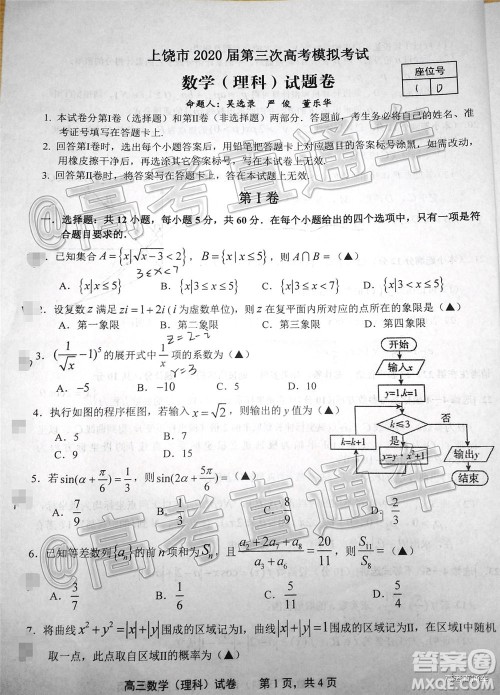 上饶市2020届第三次高考模拟考试
数学（理科）试题卷
座位号
命题人：吴选录 严俊 董乐华
1. 本试卷分第I卷（选择题）和第II卷（非选择题）两部分．答题前，考生务必将自己的姓名、准考证号填写在答题卡上．
2. 回答第I卷时，选出每个小题答案后，用铅笔把答题卡上对应题目的答案标号涂黑，如需改动，用橡皮擦干净后，再选涂其它答案标号，写在本试卷上无效．
3. 回答第II卷时，将答案写在答题卡上，答在本试卷上无效．
第 I 卷
一、选择题：共12小题，每小题5分，共60分．在每小题给出的四个选项中，只有一项是符合题目要求的．
1. 已知集合 A={x|√(x-3)<2}，B={x|x≤5}，则A∩B=（▲）
3≤x<7
A．{x|x≤5} B．{x|x<5} C．{x|3≤x≤5} D．{x|3<x<5}
2. 设复数z满足zi=1+2i（i为虚数单位），则z在复平面内所对应的点所在的象限是（▲）
A．第一象限 B．第二象限 C．第三象限 D．第四象限
3. (1/√x-1)^5 的展开式中 1/x 项的系数为（▲）
A．-5 B．-10 C．5 D．10
4. 执行如图的程序框图，若输入x=√2，则输出的y值为（▲）
A．5 B．7
C．9 D．15
开始
输入x
y=1,k=1
k≤3
否
是
k=k+1
y=y·x²+1
输出y
结束
5. 若sin(α+π/6)=1/3，则sin(2α+5π/6)=（▲）
A．7/9 B．1/3 C．8/9 D．2/3
6. 已知等差数列{aₙ}的前n项和为Sₙ，且(a₂+2a₇+a₈)/(a₃+a₆)=20/11，则S₁₁/S₈=（▲）
A．3/7 B．1/6 C．5/11 D．5/4
7. 将曲线x²+y²=|x|+|y|围成的区域记为I，曲线|x|+|y|=1围成的区域记为II，在区域I中随机取一点，此点取自区域II的概率为（▲）
高三数学（理科）试卷 第1页，共4页
@高考直通车
@高考直通车
答案圈